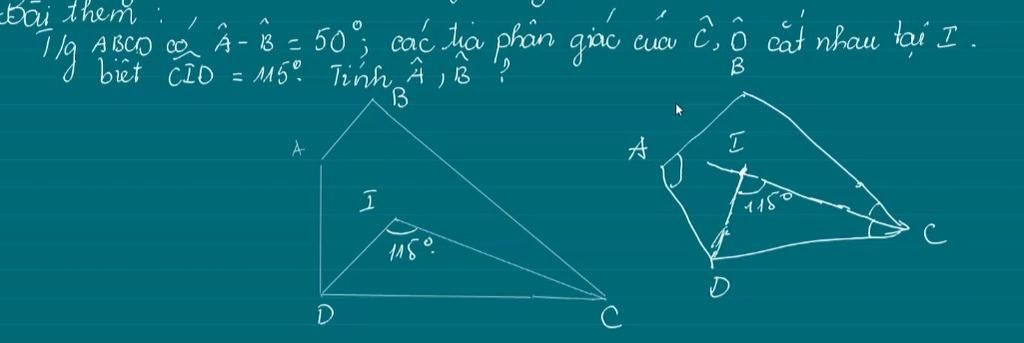 Bài thêm :
T/g ABCD có Â - B̂ = 50°; các tia phân giác của Ĉ, D̂ cắt nhau tại I.
biết CÎD = 115°. Tính Â, B̂ ?
B
B
A
A
I
I
115°
115°.
C
D
D
C